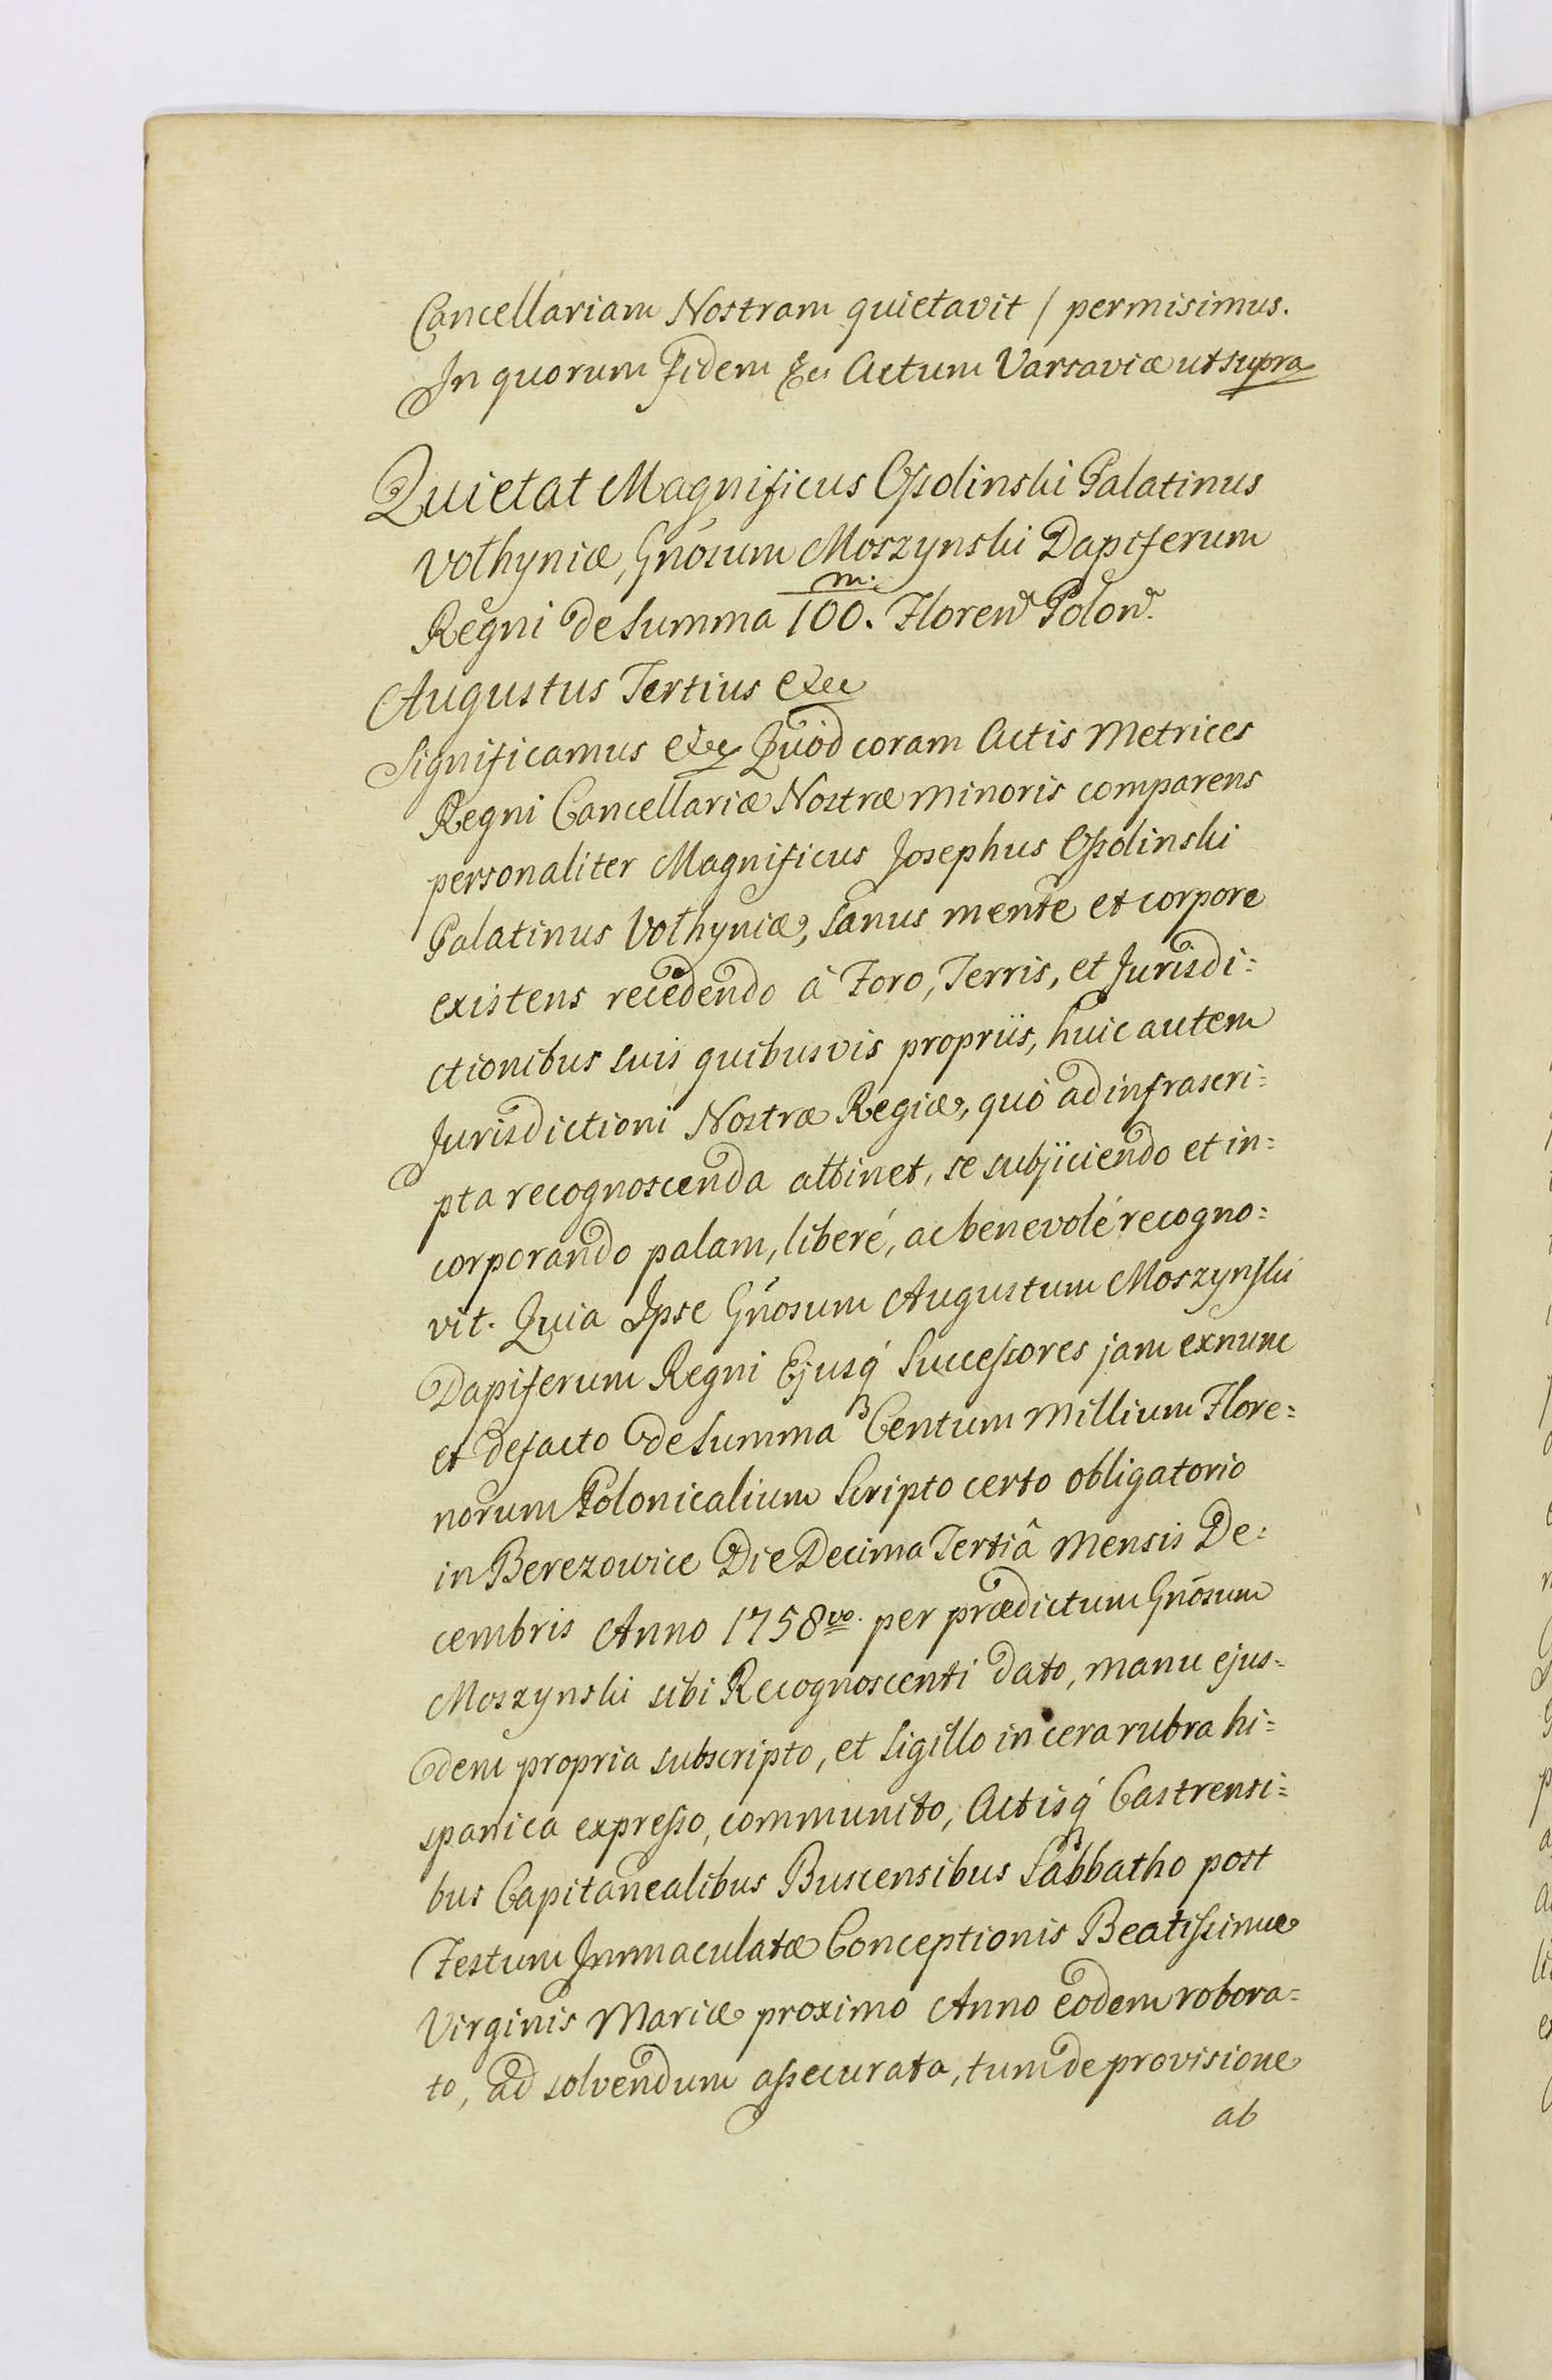 Cancellariam Nostram quietavit / permisimus.
In quorum fidem &c. Actum Varsaviæ ut supra
Quietat Magnificus Ossolinski Palatinus
Volhyniæ, Gnōsum Moszynski Dapiferum
Regni de Summa 100.m. Floren. Polon.
Augustus Tertius &c
Significamus &c Quod coram Actis Metrices
Regni Cancellariæ Nostræ minoris comparens
personaliter Magnificus Josephus Ossolinski
Palatinus Volhyniæ, sanus mente et corpore
existens recedendo à Foro, Terris, et Jurisdi=
ctionibus suis quibusvis propriis, huic autem
Jurisdictioni Nostræ Regiæ, quò ad infrascri=
pta recognoscenda attinet, se subjiciendo et in=
corporando palam, liberé, ac benevolé recogno=
vit. Quia Ipse Gnōsum Augustum Moszynski
Dapiferum Regni Ejusq́ Successores jam exnunc
et defacto de Summa Centum Millium Flore=
norum Polonicalium Scripto certo obligatorio
in Berezowice Die Decima Tertiâ Mensis De=
cembris Anno 1758vo. per prædictum Gnōsum
Moszynski sibi Recognoscenti dato, manu ejus=
dem propria subscripto, et Sigillo in cera rubra hi=
spanica expresso, communito, Actisq́ Castrensi=
bus Capitanealibus Buscensibus Sabbatho post
Festum Immaculatæ Conceptionis Beatissimæ
Virginis Mariæ proximo Anno eodem robora=
to, ad solvendum assecurata, tum de provisione
ab